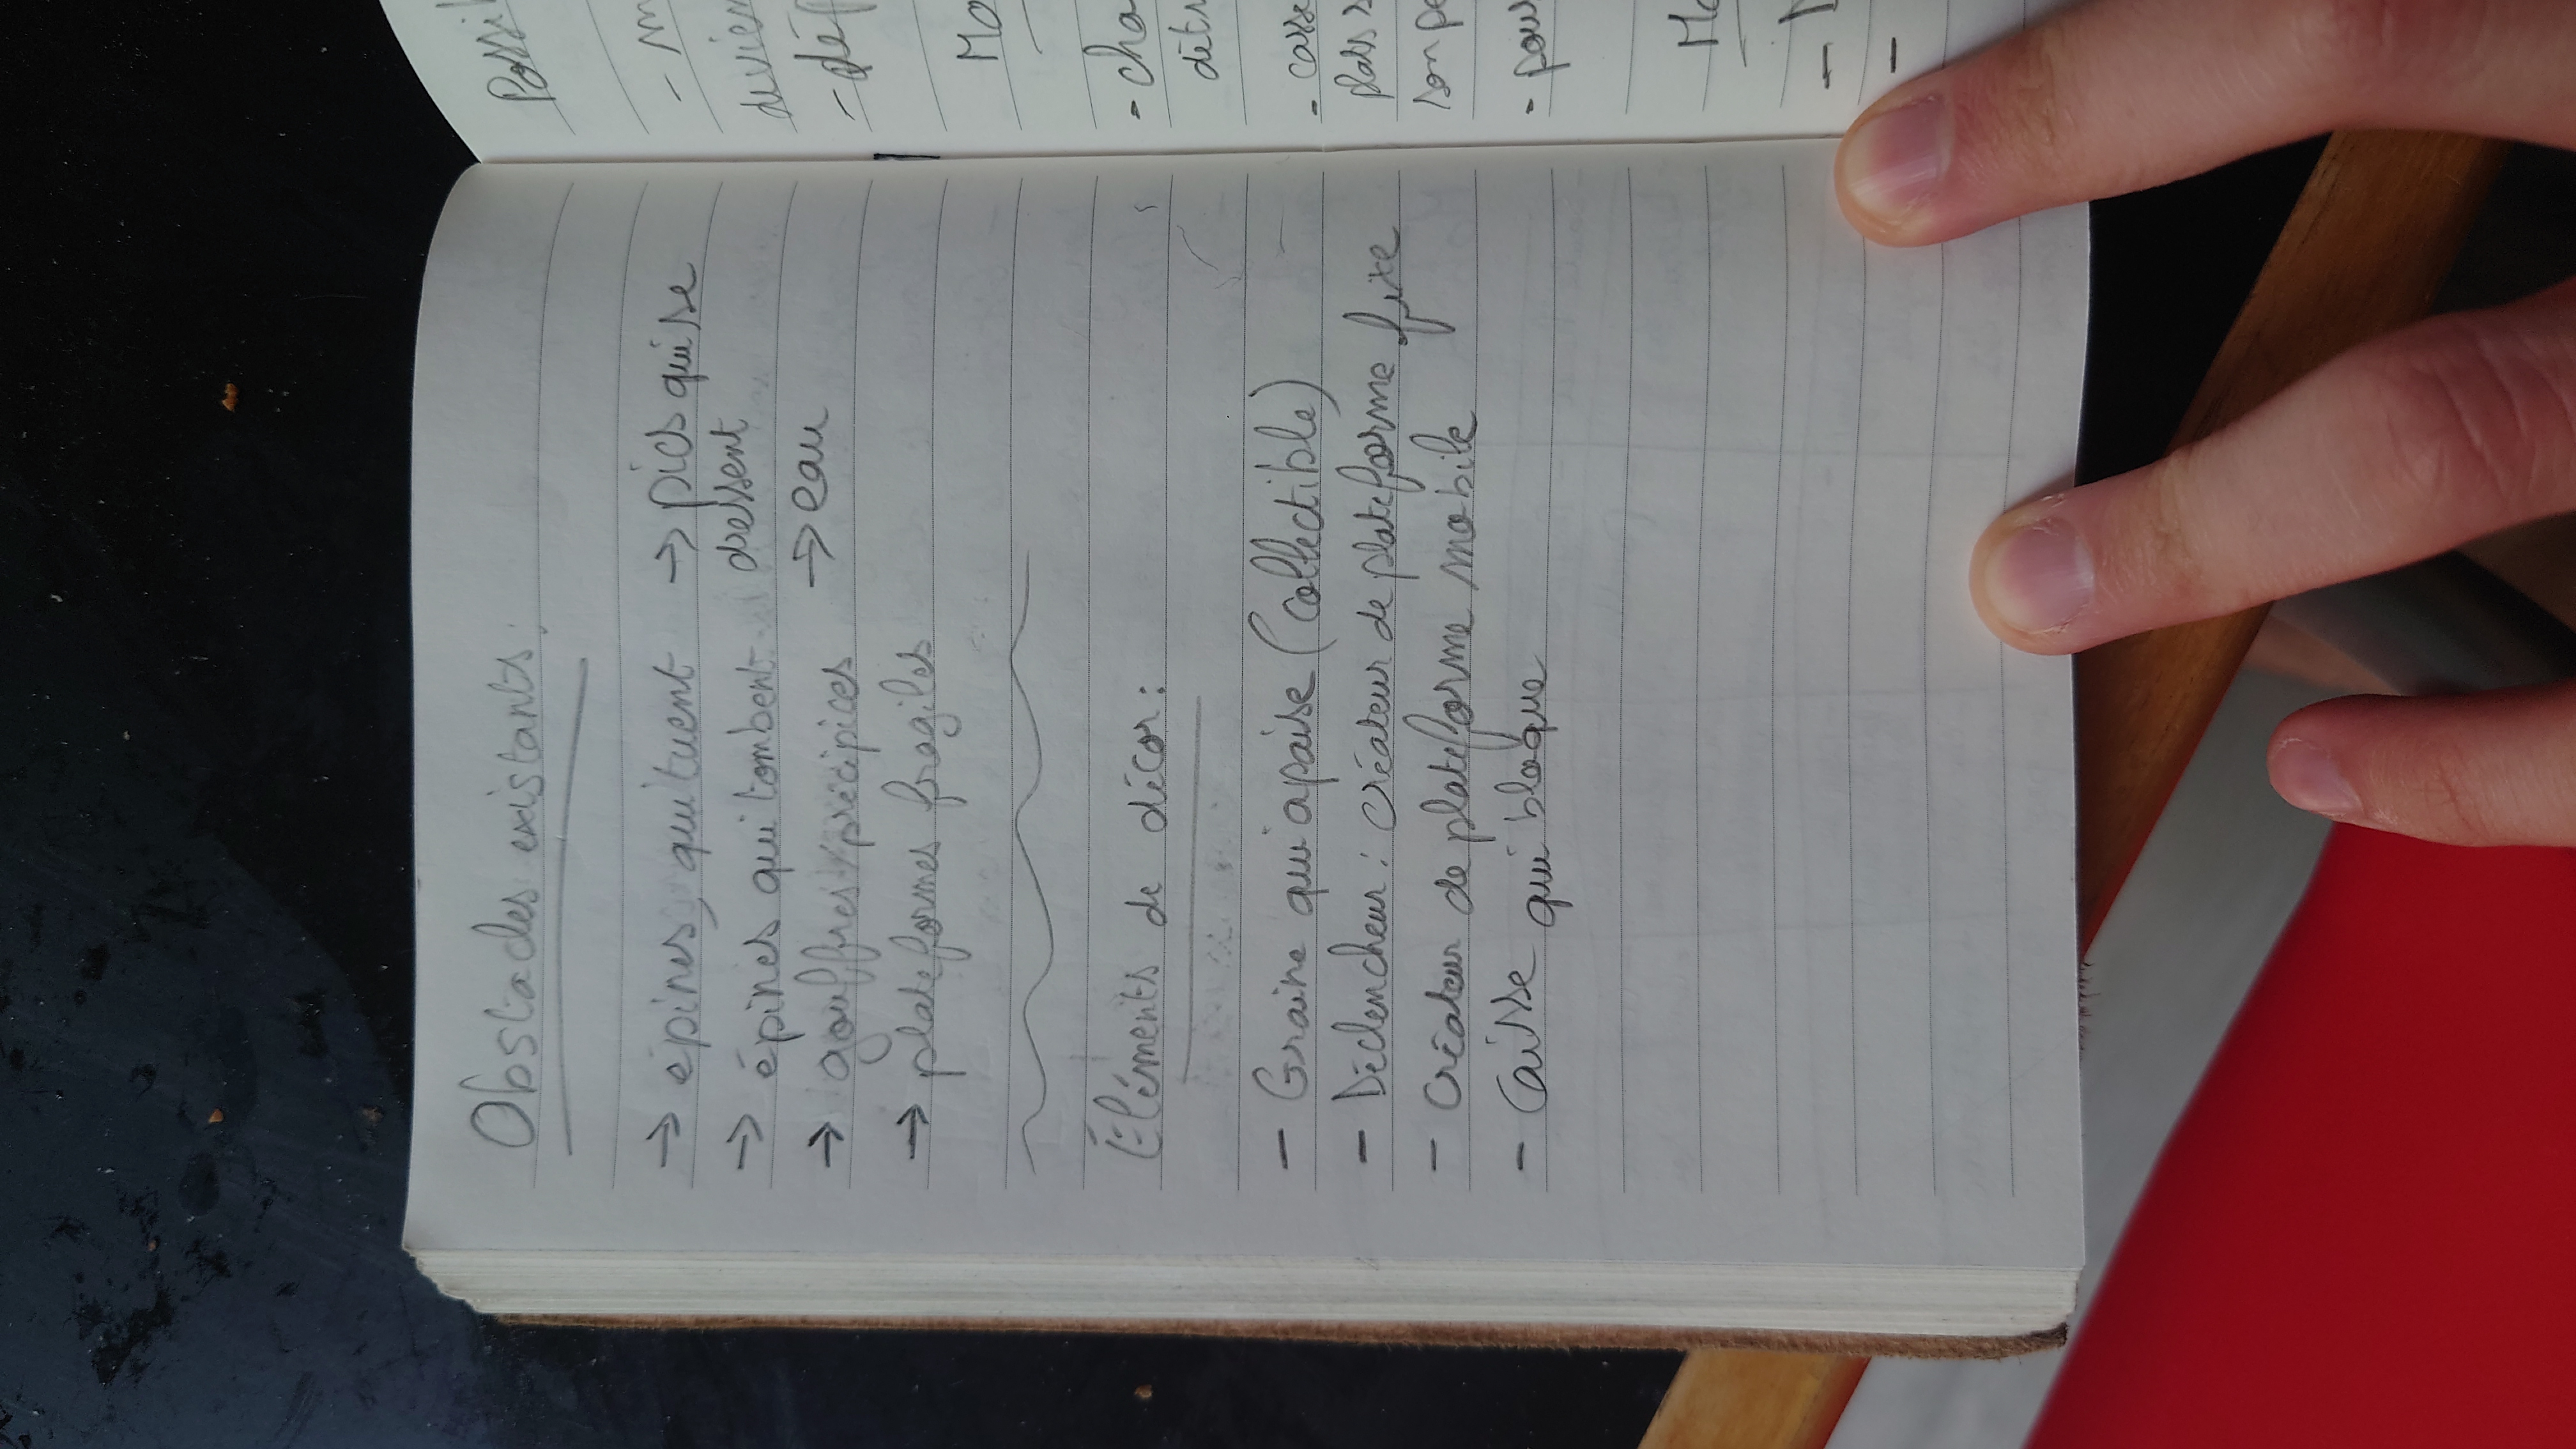 Obstacles existants :
→ épines, qui tuent → pics qui se
→ épines qui tombent dressent
→ gouffres / précipices → eau
→ plateformes fragiles
Éléments de décor :
- Graine qui apaise (Collectible)
- Déclencheur : créateur de plateforme fixe
- Créateur de plateforme mobile
- Caisse qui bloque
Possi
- m
devien
- déf
Mo
- cha
détr
- casse
plats s
son pe
- pour
Mo
-
-